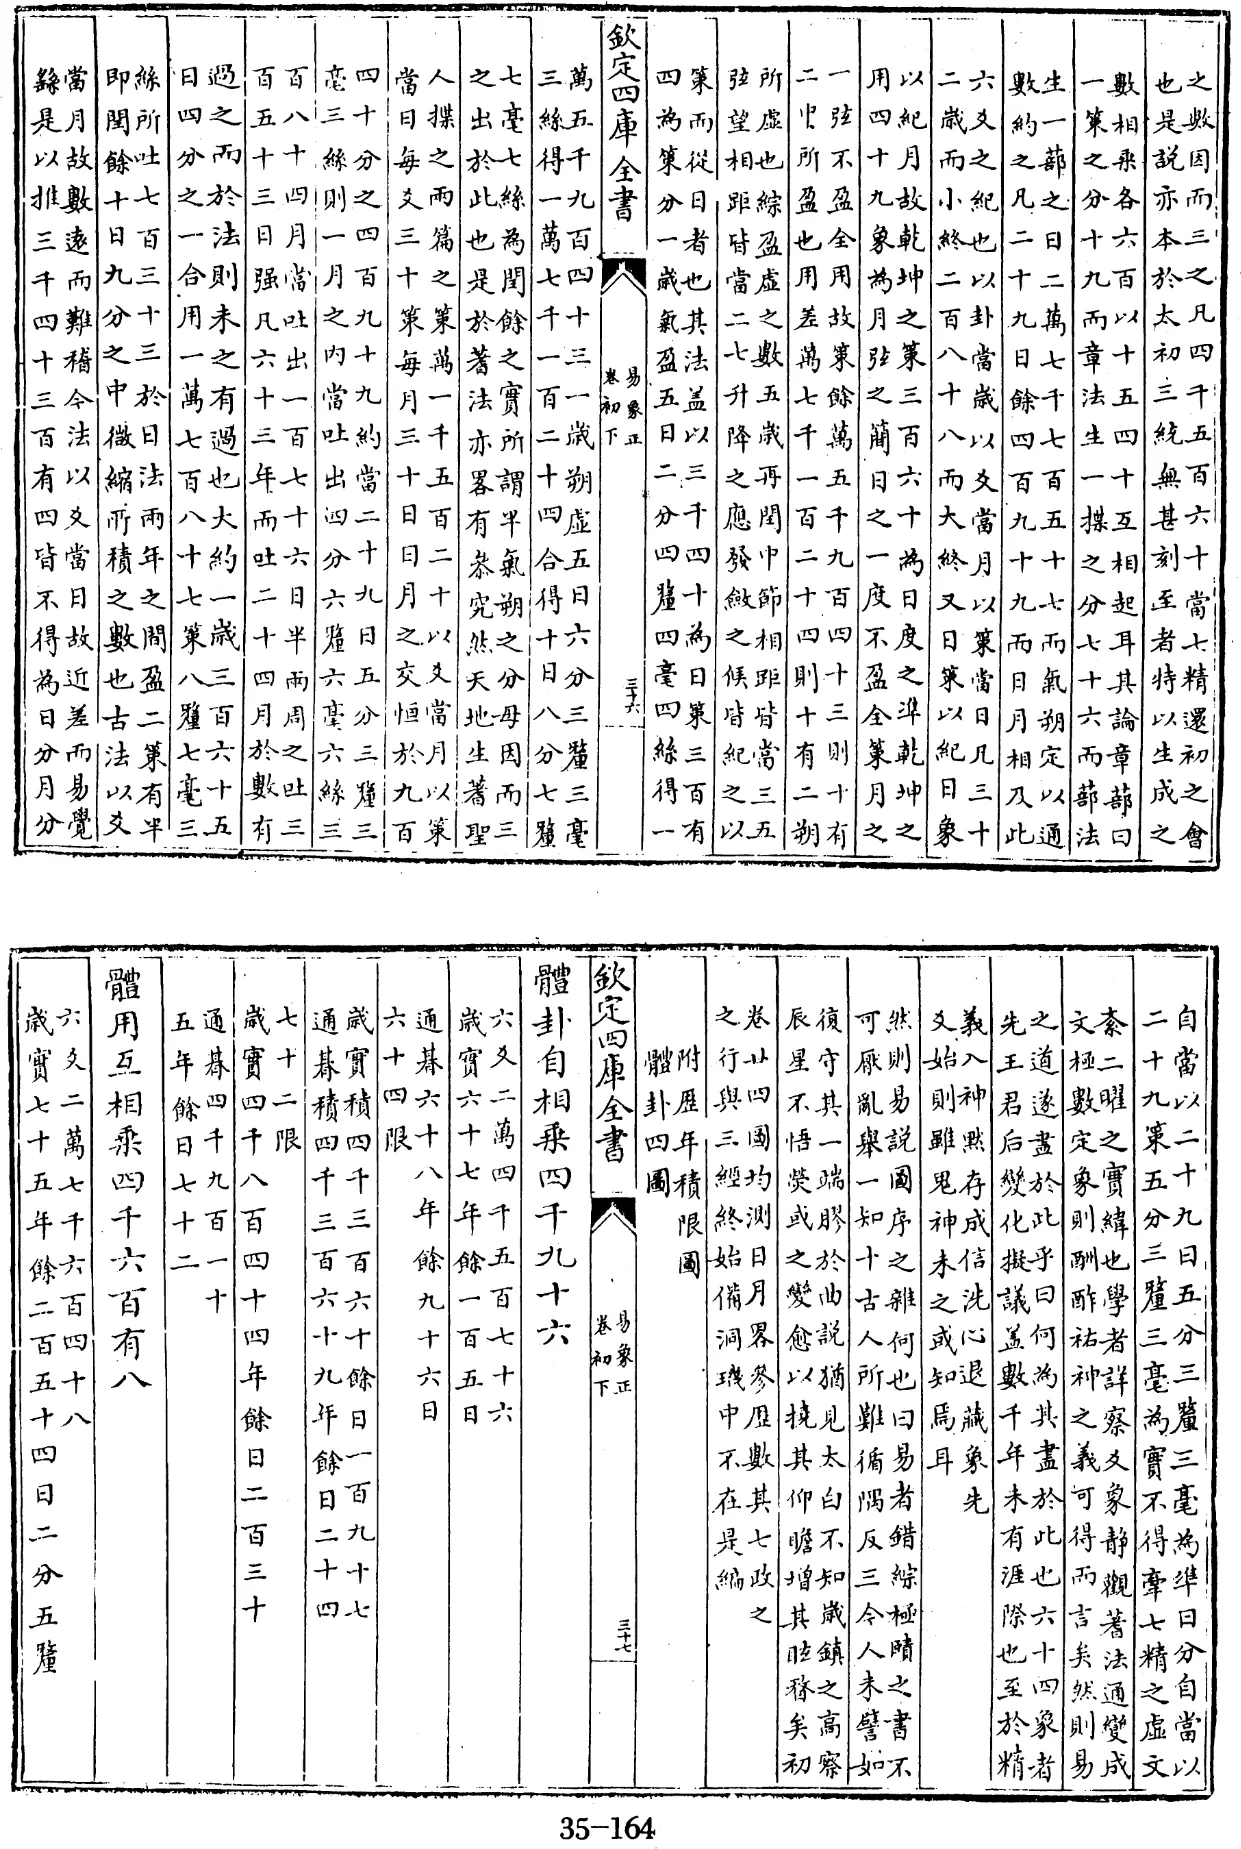 之數因而三之凡四千五百六十當七精還初之會
也是説亦本於太初三統無甚刻至者特以生成之
數相乘各六百以十五四十互相起耳其論章蔀曰
一策之分十九而章法生一揲之分七十六而蔀法
生一蔀之日二萬七千七百五十七而氣朔定以通
數約之凡二十九日餘四百九十九而日月相及此
六爻之紀也以卦當歲以爻當月以策當日凡三十
二歲而小終二百八十八而大終又日策以紀日象
以紀月故乾坤之策三百六十為日度之準乾坤之
用四十九象為月弦之簡日之一度不盈全策月之
一弦不盈全用故策餘萬五千九百四十三則十有
二中所盈也用差萬七千一百二十四則十有二朔
所虛也綜盈虛之數五歲再閏中節相距皆當三五
弦望相距皆當二七升降之應發斂之候皆紀之以
策而從日者也其法蓋以三千四十為日策三百有
四為策分一歲氣盈五日二分四釐四毫四絲得一
欽定四庫全書
易象正
卷初下
三十六
萬五千九百四十三一歲朔虛五日六分三釐三毫
三絲得一萬七千一百二十四合得十日八分七釐
七毫七絲為閏餘之實所謂半氣朔之分母因而三
之出於此也是於蓍法亦畧有叅究然天地生蓍聖
人揲之兩篇之策萬一千五百二十以爻當月以策
當日每爻三十策每月三十日日月之交恒於九百
四十分之四百九十九約當二十九日五分三釐三
毫三絲則一月之内當吐出四分六釐六毫六絲三
百八十四月當吐出一百七十六日半兩周之吐三
百五十三日强凡六十三年而吐二十四月於數有
過之而於法則未之有過也大約一歲三百六十五
日四分之一合用一萬七百八十七策八釐七毫三
絲所吐七百三十三於日法兩年之間盈二策有半
即閏餘十日九分之中微縮所積之數也古法以爻
當月故數遠而難稽今法以爻當日故近差而易覺
繇是以推三千四十三百有四皆不得為日分月分
自當以二十九日五分三釐三毫為準日分自當以
二十九策五分三釐三毫為實不得牽七精之虛文
紊二曜之實緯也學者詳察爻象静觀蓍法通變成
文極數定象則酬酢祐神之義可得而言矣然則易
之道遂盡於此乎曰何為其盡於此也六十四象者
先王君后變化擬議蓋數千年未有涯際也至於精
義入神黙存成信洗心退藏象先
爻始則雖鬼神未之或知焉耳
然則易説國序之雜何也曰易者錯綜極賾之書不
可厭亂舉一知十古人所難循隅反三今人未譬如
復守其一端膠於曲説猶見太白不知歲鎮之高察
辰星不悟熒或之變愈以撓其仰瞻增其眭瞀矣初
卷廿四圖均測日月畧參歴數其七政之
之行與三經終始備洞璣中不在是編
附歴年積限圖
體卦四圖
欽定四庫全書
易象正
卷初下
三十七
體卦自相乘四千九十六
六爻二萬四千五百七十六
歲實六十七年餘一百五日
通朞六十八年餘九十六日
六十四限
歲實積四千三百六十餘日一百九十七
通朞積四千三百六十九年餘日二十四
七十二限
歲實四千八百四十四年餘日二百三十
通朞四千九百一十
五年餘日七十二
體用互相乘四千六百有八
六爻二萬七千六百四十八
歲實七十五年餘二百五十四日二分五釐
35-164